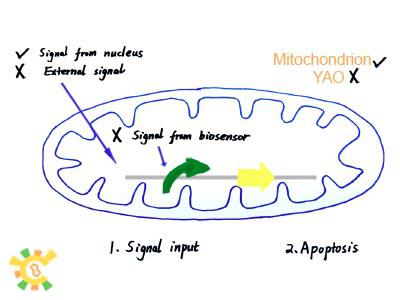 ✓ Signal from nucleus
X External signal
Mitochondrion ✓
YAO X
X Signal from biosensor
1. Signal input
2. Apoptosis